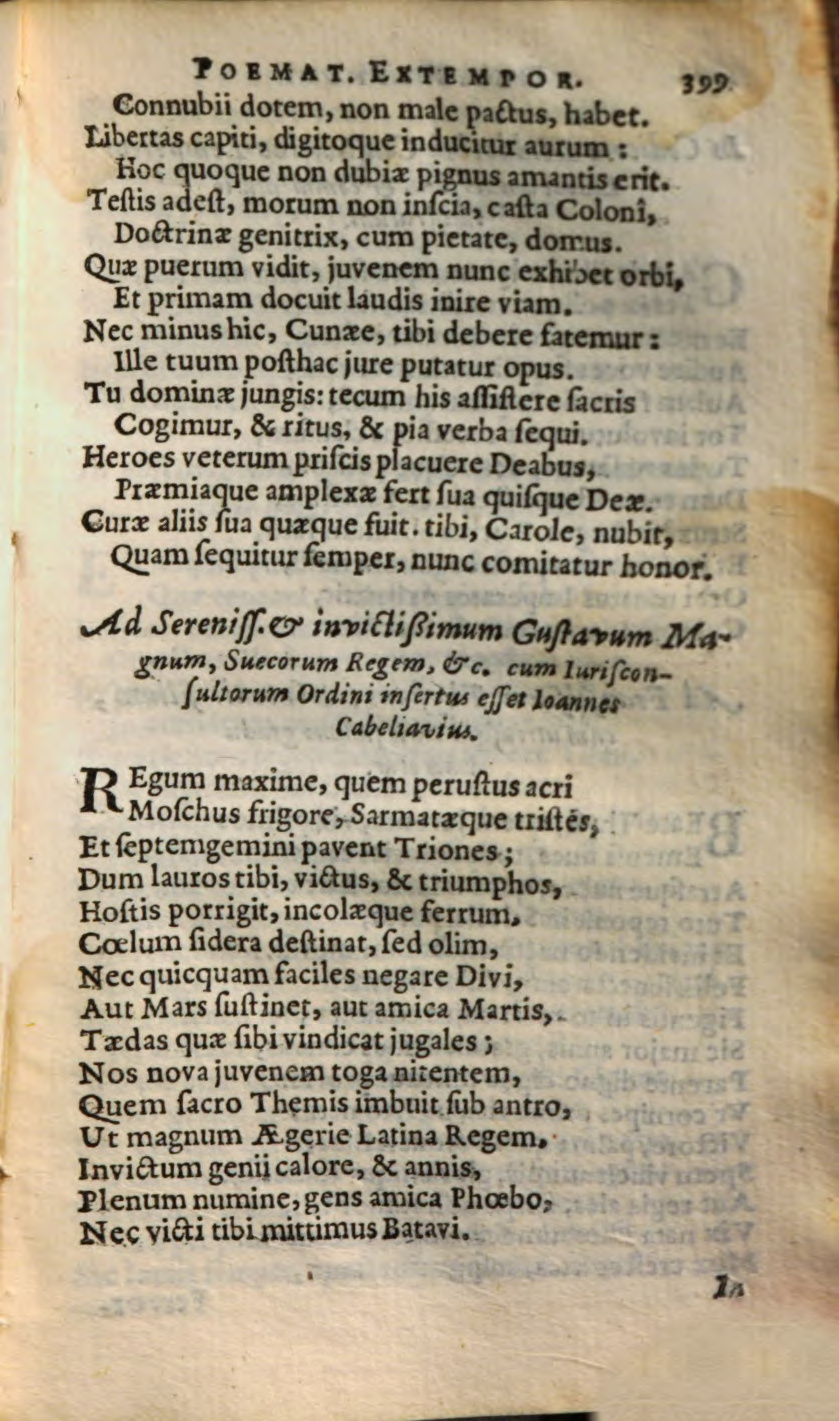 POEMAT. EXTEMPOR. 399
Connubii dotem, non male pactus, habet.
Libertas capiti, digitoque inducitur aurum :
Hoc quoque non dubiæ pignus amantis erit.
Teſtis adeſt, morum non inſcia, caſta Coloni,
Doctrinæ genitrix, cum pietate, domus.
Quæ puerum vidit, juvenem nunc exhibet orbi,
Et primam docuit laudis inire viam.
Nec minus hic, Cunæe, tibi debere fatemur :
Ille tuum poſthac jure putatur opus.
Tu dominæ jungis: tecum his aſſiſtere ſacris
Cogimur, & ritus, & pia verba ſequi.
Heroes veterum priſcis placuere Deabus,
Præmiaque amplexæ fert ſua quiſque Deæ.
Curæ aliis ſua quæque fuit. tibi, Carole, nubit,
Quam ſequitur ſemper, nunc comitatur honor.
Ad Sereniſſ. & invictißimum Guſtavum Ma-
gnum, Suecorum Regem, &c. cum Iuriſcon-
ſultorum Ordini inſertus eſſet Ioannes
Cabeliavius.
REgum maxime, quem peruſtus acri
Moſchus frigore, Sarmatæque triſtes,
Et ſeptemgemini pavent Triones ;
Dum lauros tibi, victus, & triumphos,
Hoſtis porrigit, incolæque ferrum,
Cœlum ſidera deſtinat, ſed olim,
Nec quicquam faciles negare Divi,
Aut Mars ſuſtinet, aut amica Martis,
Tædas quæ ſibi vindicat jugales ;
Nos nova juvenem toga nitentem,
Quem ſacro Themis imbuit ſub antro,
Ut magnum Ægerie Latina Regem,
Invictum genii calore, & annis,
Plenum numine, gens amica Phœbo,
Nec victi tibi mittimus Batavi.
In